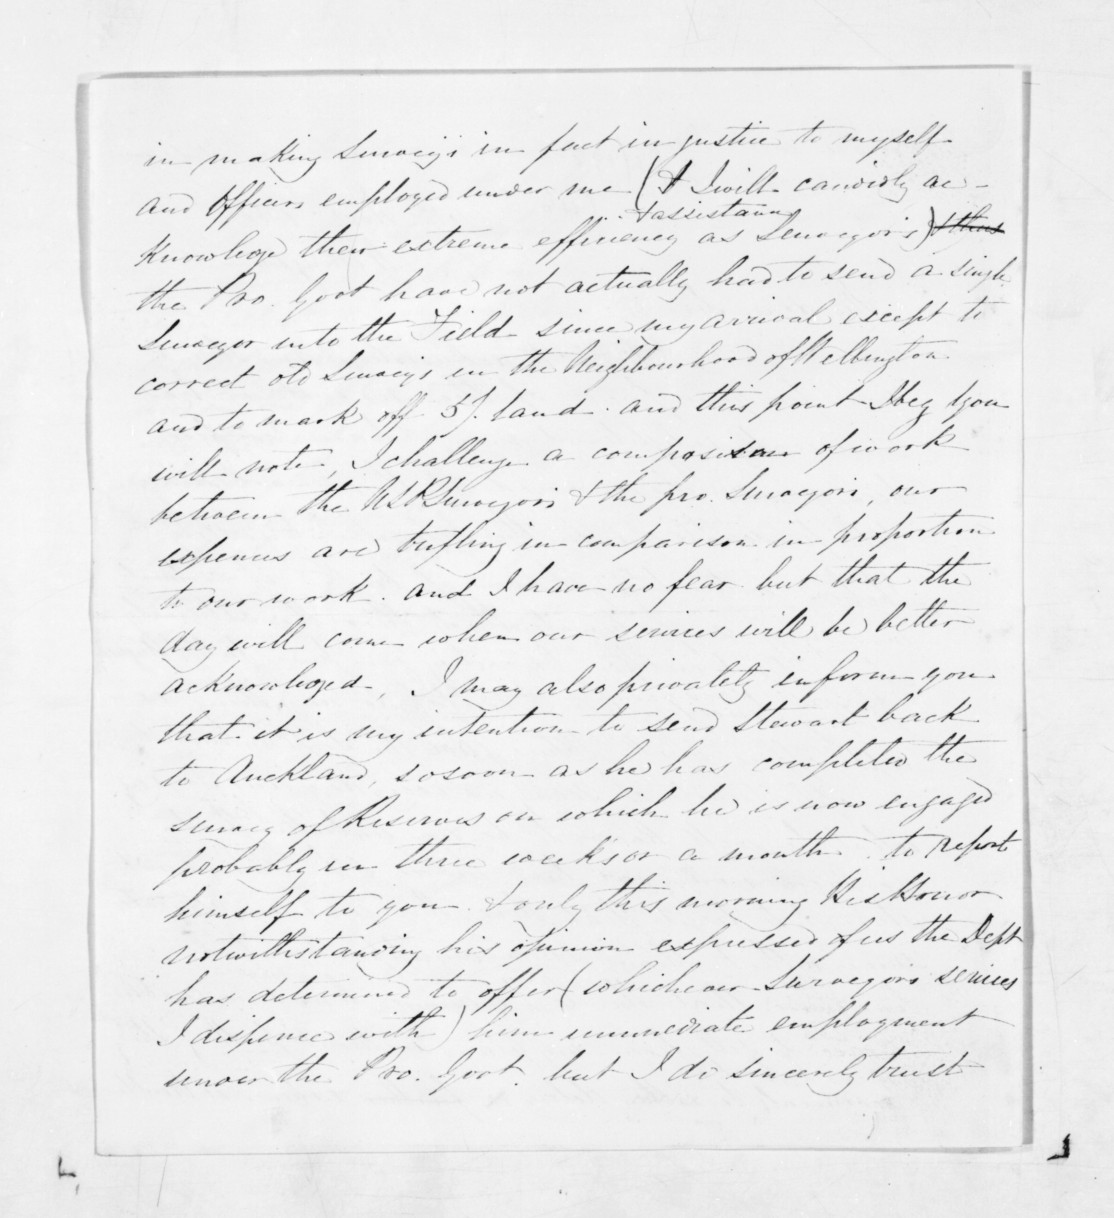 in making Surveys in fact in justice to myself
and Officers employed under me (& I will candidly ac-
& assistants
knowledge their extreme efficiency as Surveyors) & that
the Pro. Govt have not actually had to send a single
Surveyor into the Field since my arrival except to
correct old Surveys in the Neighbourhood of Wellington
and to mark off 5/. land. and this point I beg you
will note, I challenge a comparison of work
between the Surveyors & the pro. Surveyors, our
expences are trifling in comparison in proportion
to our work. and I have no fear but that the
day will come when our services will be better
acknowledged, I may also privately inform you
that it is my intention to send Stewart back
to Auckland, so soon as he has completed the
survey of Reserves on which he is now engaged
probably in three weeks or a month. to report
himself to you. & only this morning His Honor
notwithstanding his opinion expressed of us the Dept
has determined to offer (whichever Surveyors services
I dispence with) him immediate employment
under the Pro. Govt. but I do sincerely trust